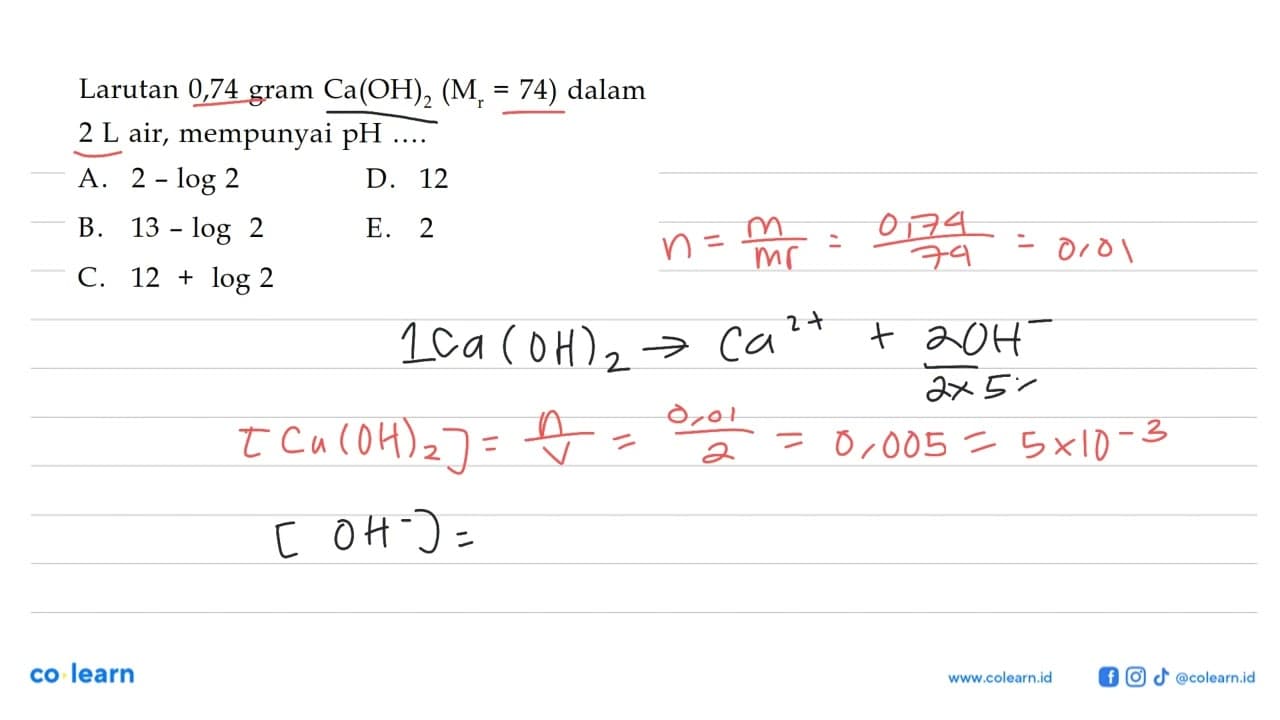 Larutan 0,74 gram Ca(OH)₂ (Mᵣ = 74) dalam
2 L air, mempunyai pH ....
A. 2 – log 2 D. 12
B. 13 – log 2 E. 2
C. 12 + log 2
n = m/mr = 0,74/74 = 0,01
1Ca(OH)₂ → Ca²⁺ + 2OH⁻
2×5
[Ca(OH)₂] = n/V = 0,01/2 = 0,005 = 5×10⁻³
[OH⁻) =
co learn
www.colearn.id @colearn.id